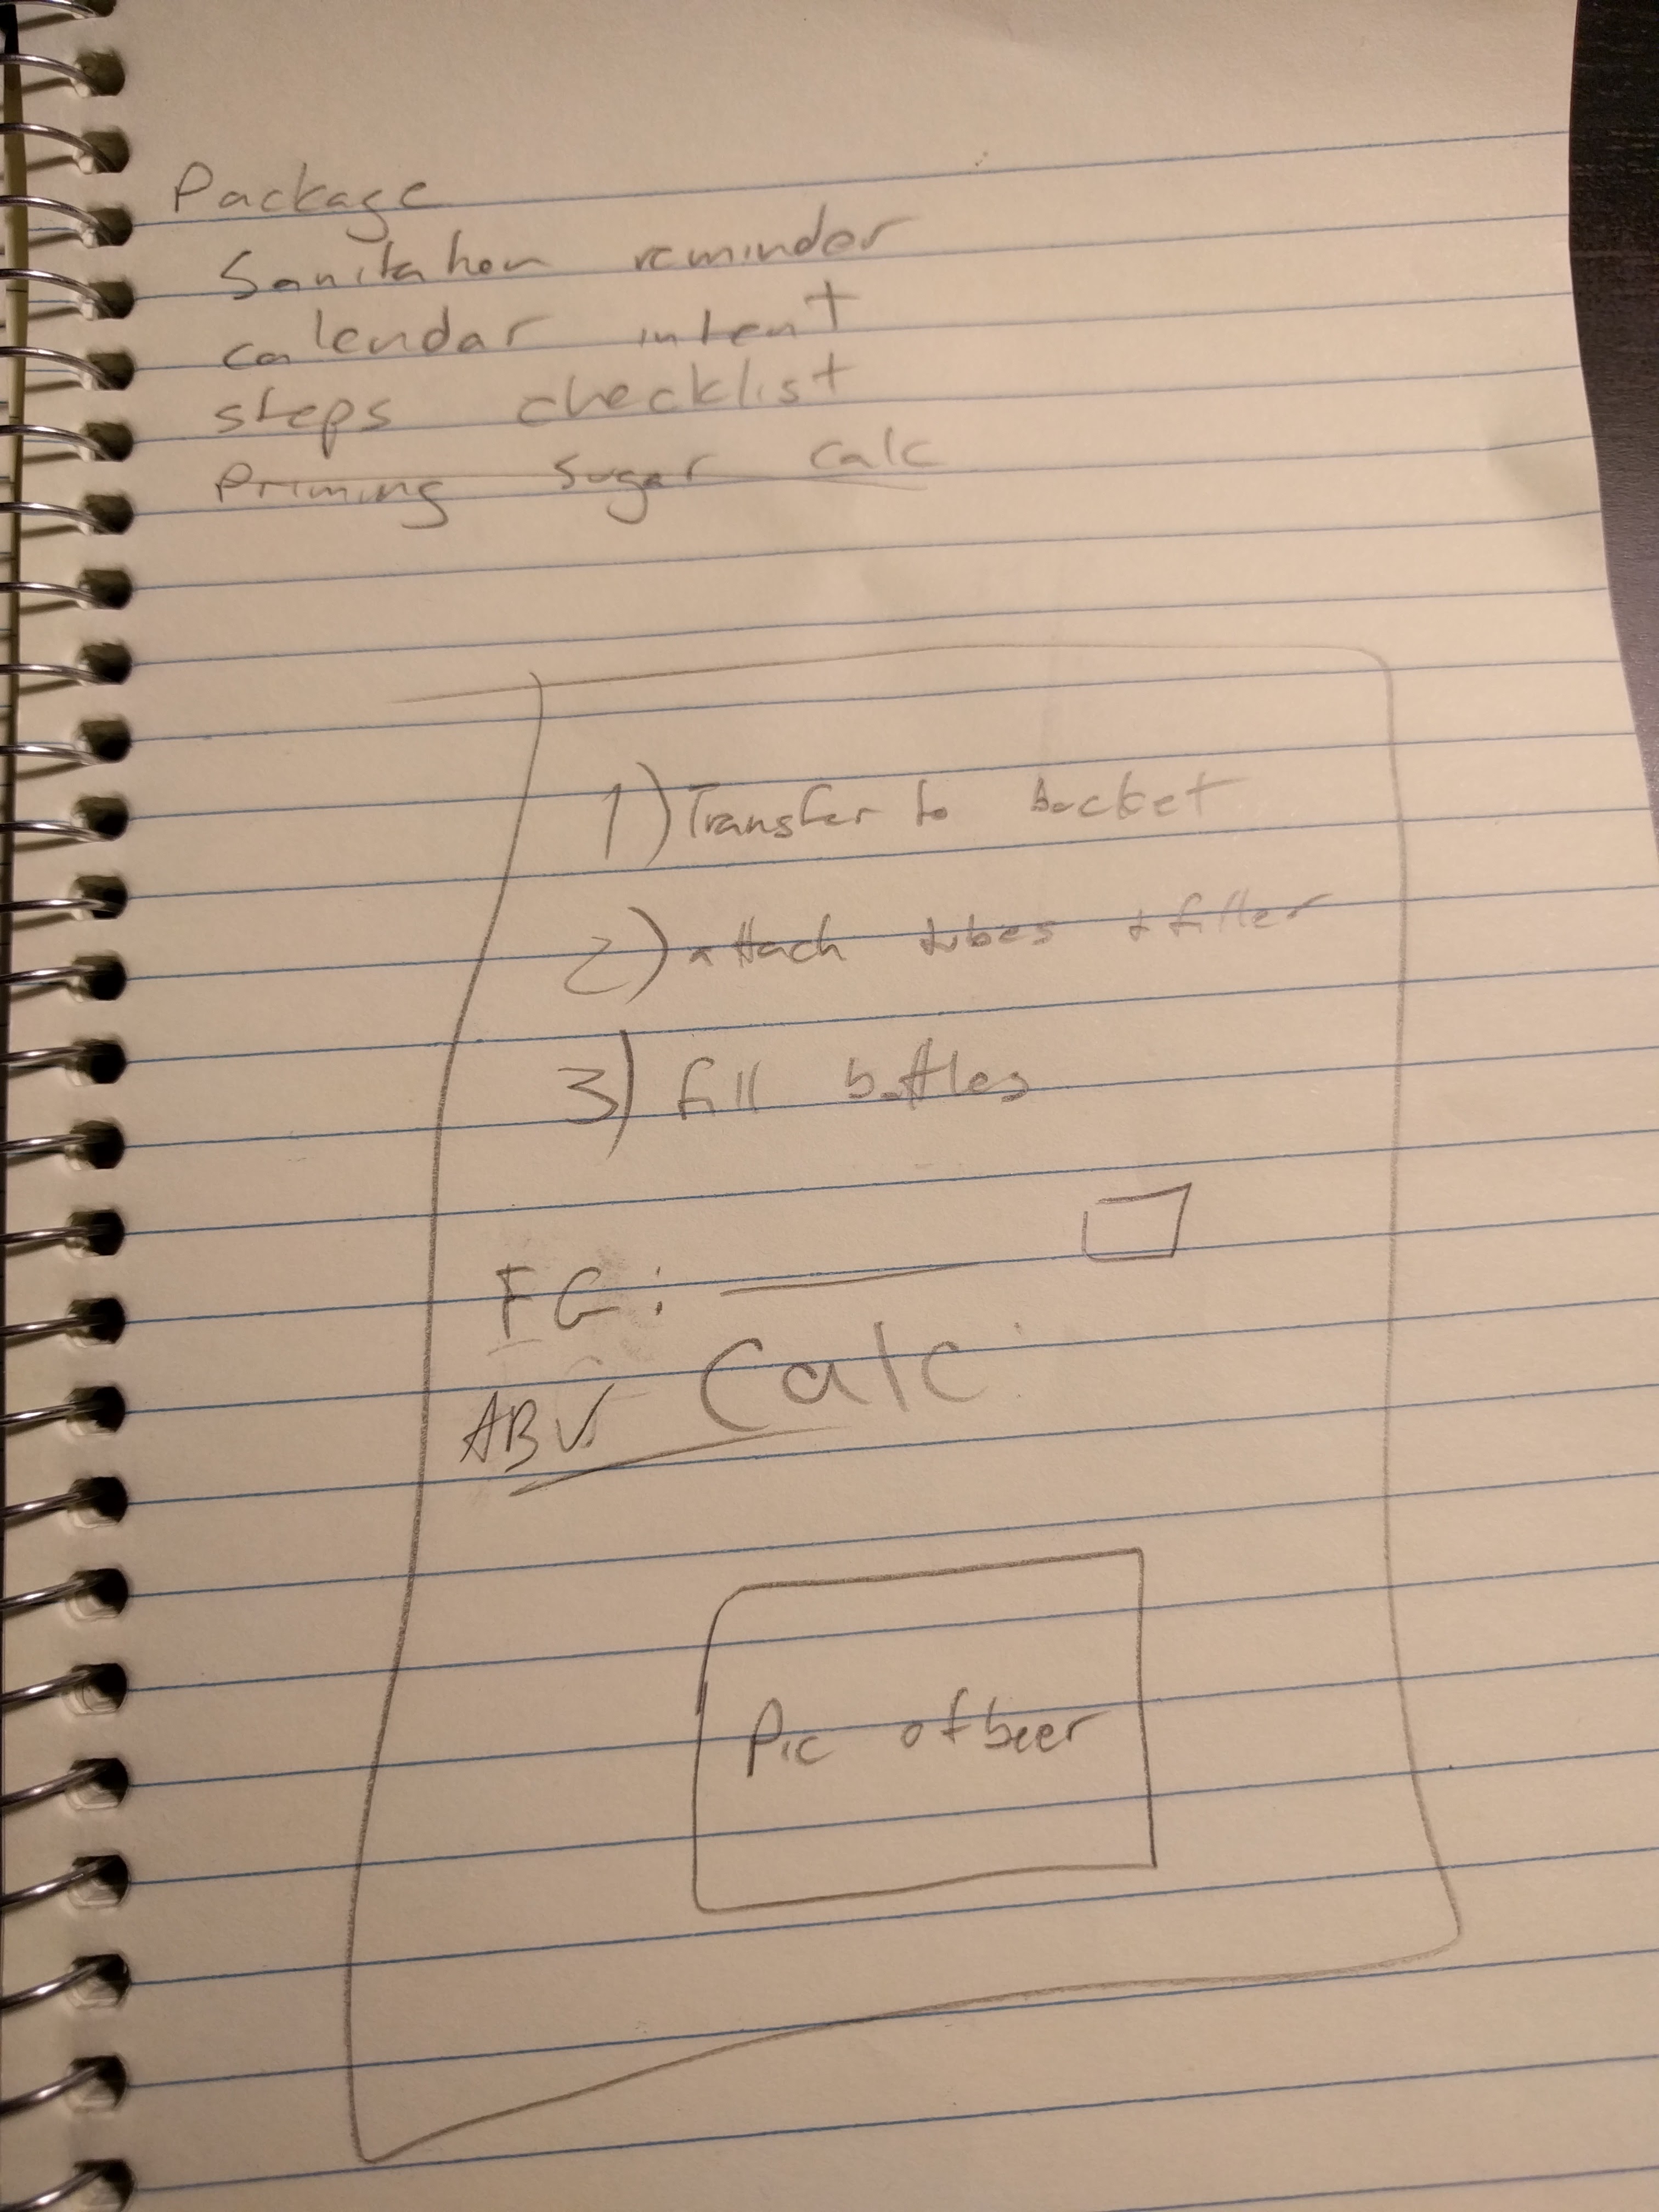 Package
Sanitation reminder
calendar intent
steps checklist
Priming Sugar calc
1) Transfer to bucket
2) attach tubes + filler
3) fill bottles
FG:
ABV. Calc
Pic of beer